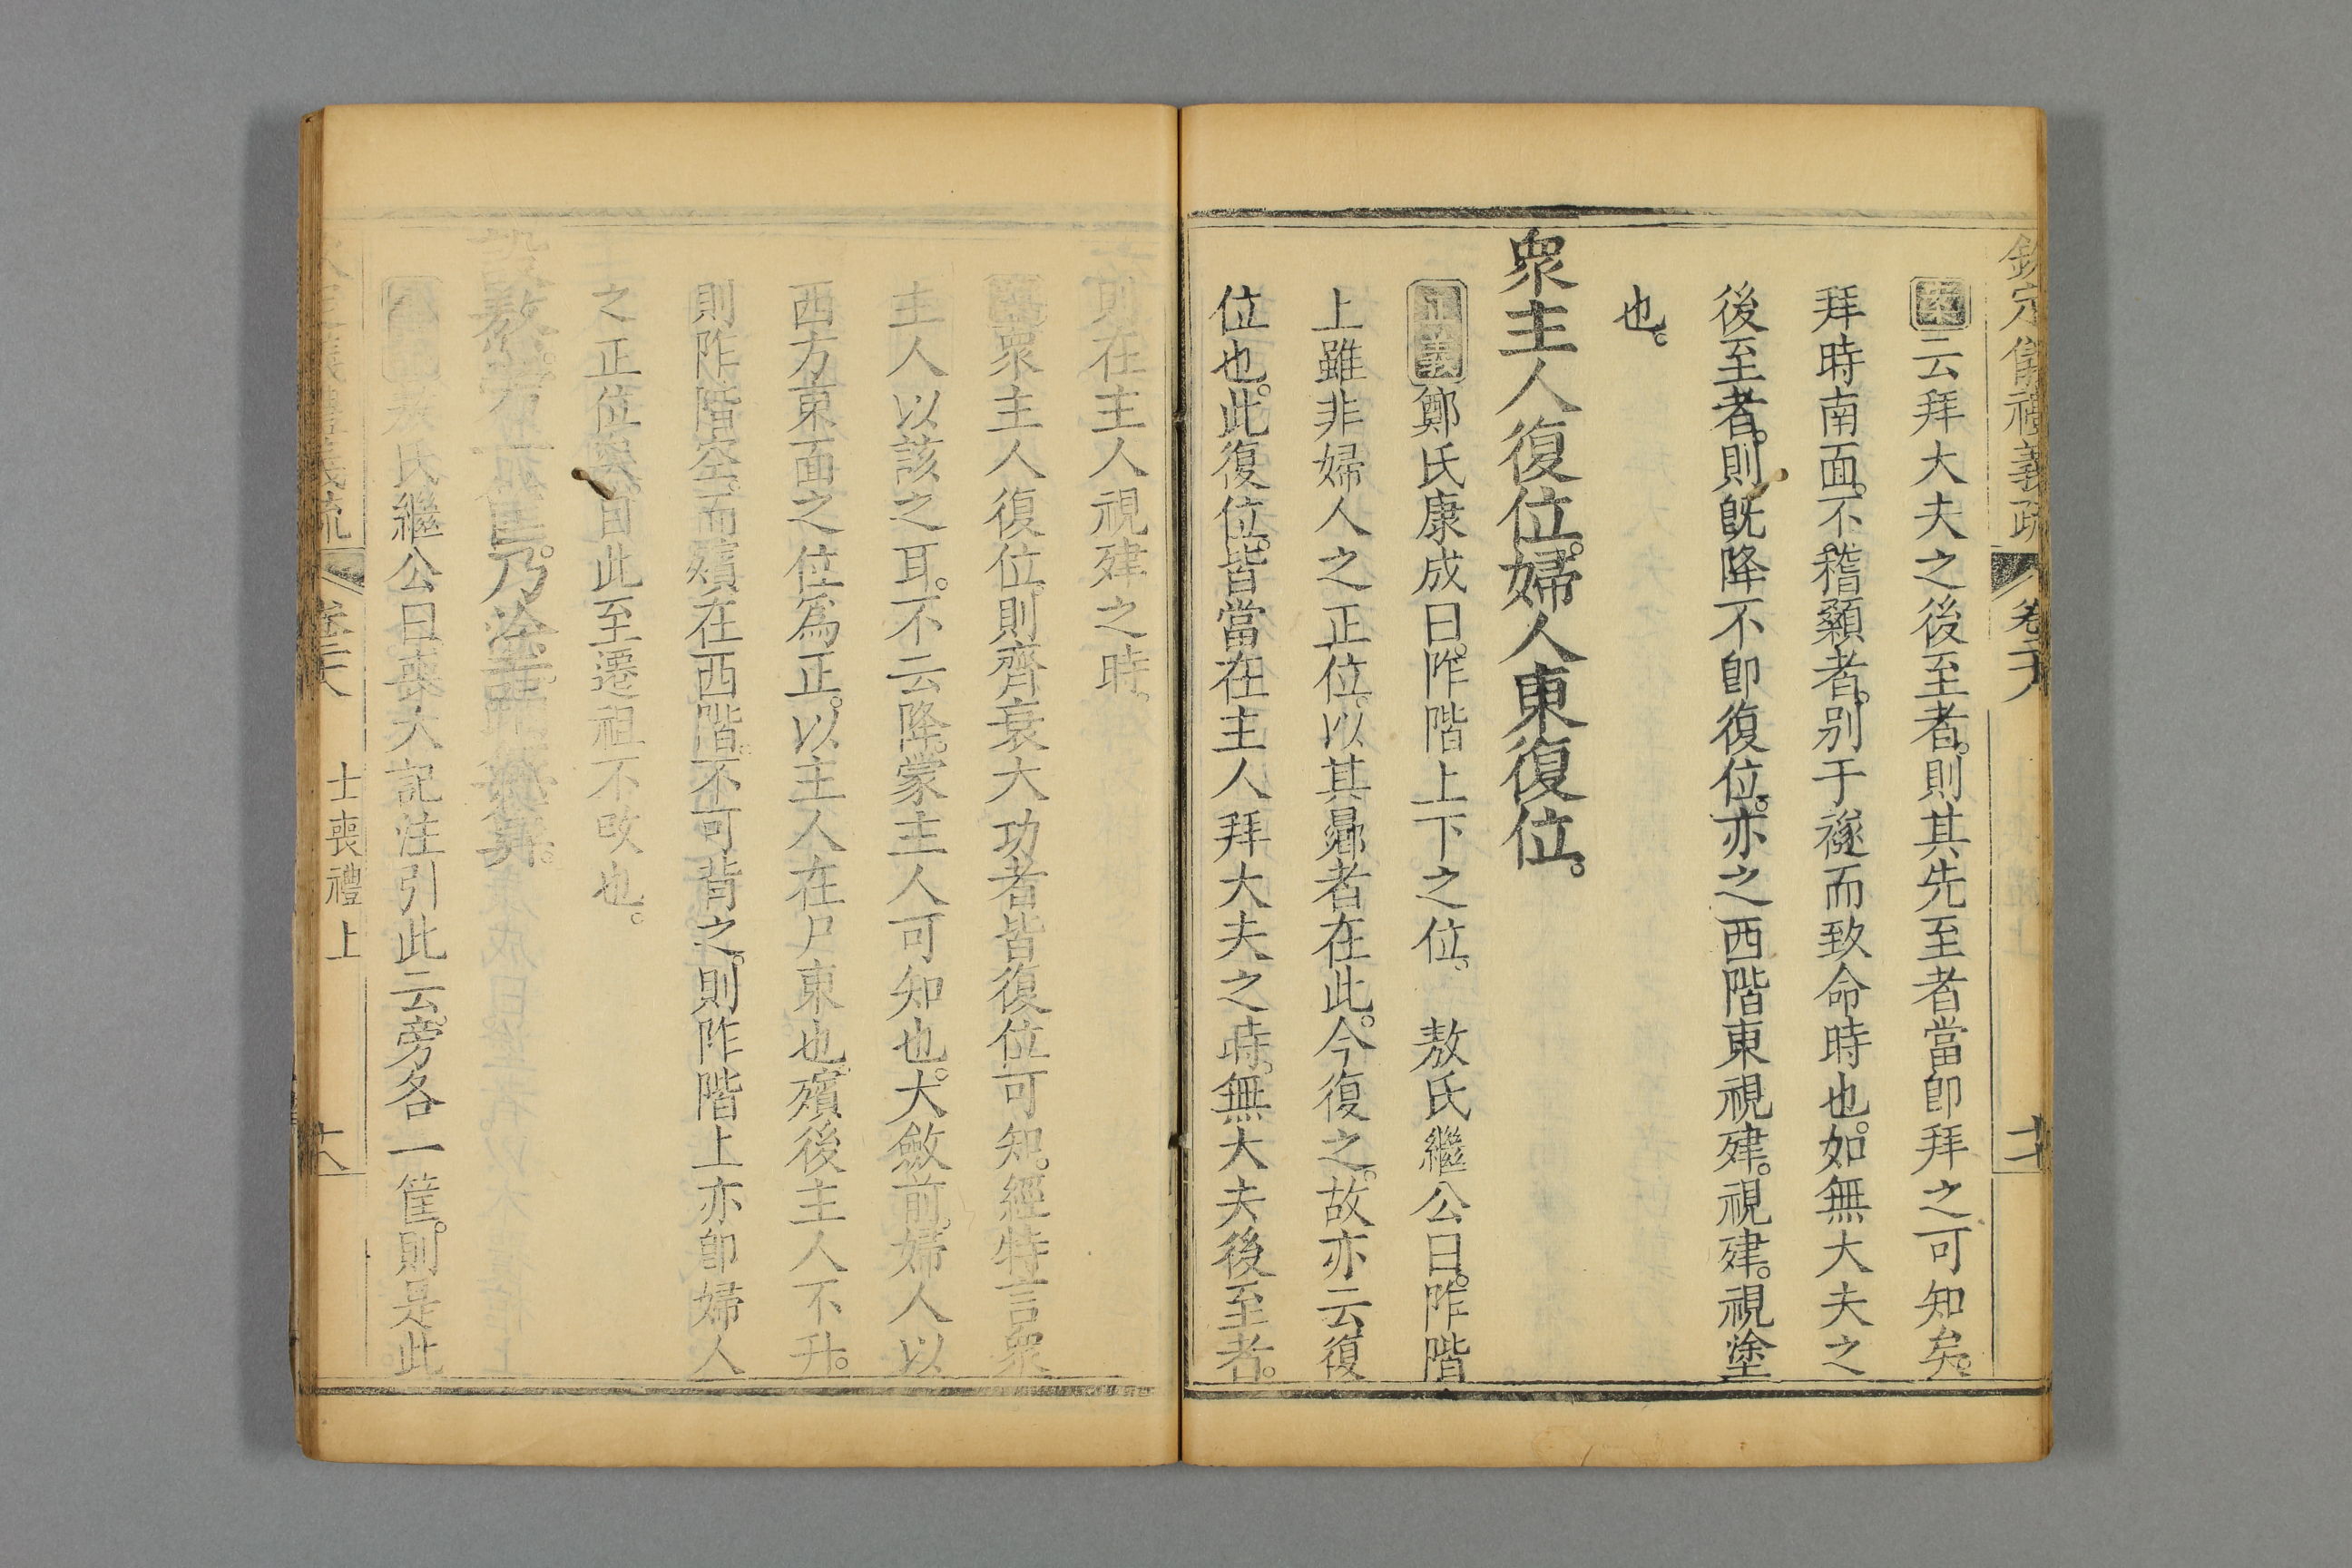 欽定儀禮義疏 卷二十八
案云拜大夫之後至者。則其先至者當卽拜之可知矣。
拜時南面。不稽顙者。別于襚而致命時也。如無大夫之
後至者。則旣降不卽復位。亦之西階東視肂。視肂。視塗
也。
衆主人復位。婦人東復位。
正義鄭氏康成曰。阼階上下之位。 敖氏繼公曰。阼階
上雖非婦人之正位。以其曏者在此。今復之。故亦云復
位也。此復位。皆當在主人拜大夫之時。無大夫後至者。
則在主人視肂之時。
案衆主人復位。則齊衰大功者皆復位可知。經特言衆
主人以該之耳。不云降。蒙主人可知也。大斂前。婦人以
西方東面之位爲正。以主人在尸東也。殯後主人不升。
則阼階空。而殯在西階。不可背之。則阼階上亦卽婦人
之正位與。自此至遷祖不改也。
設熬。旁一筐。乃塗。踊無算。
敖氏繼公曰。喪大記注引此云。旁各一筐。則是此
卷二十八 士喪禮上